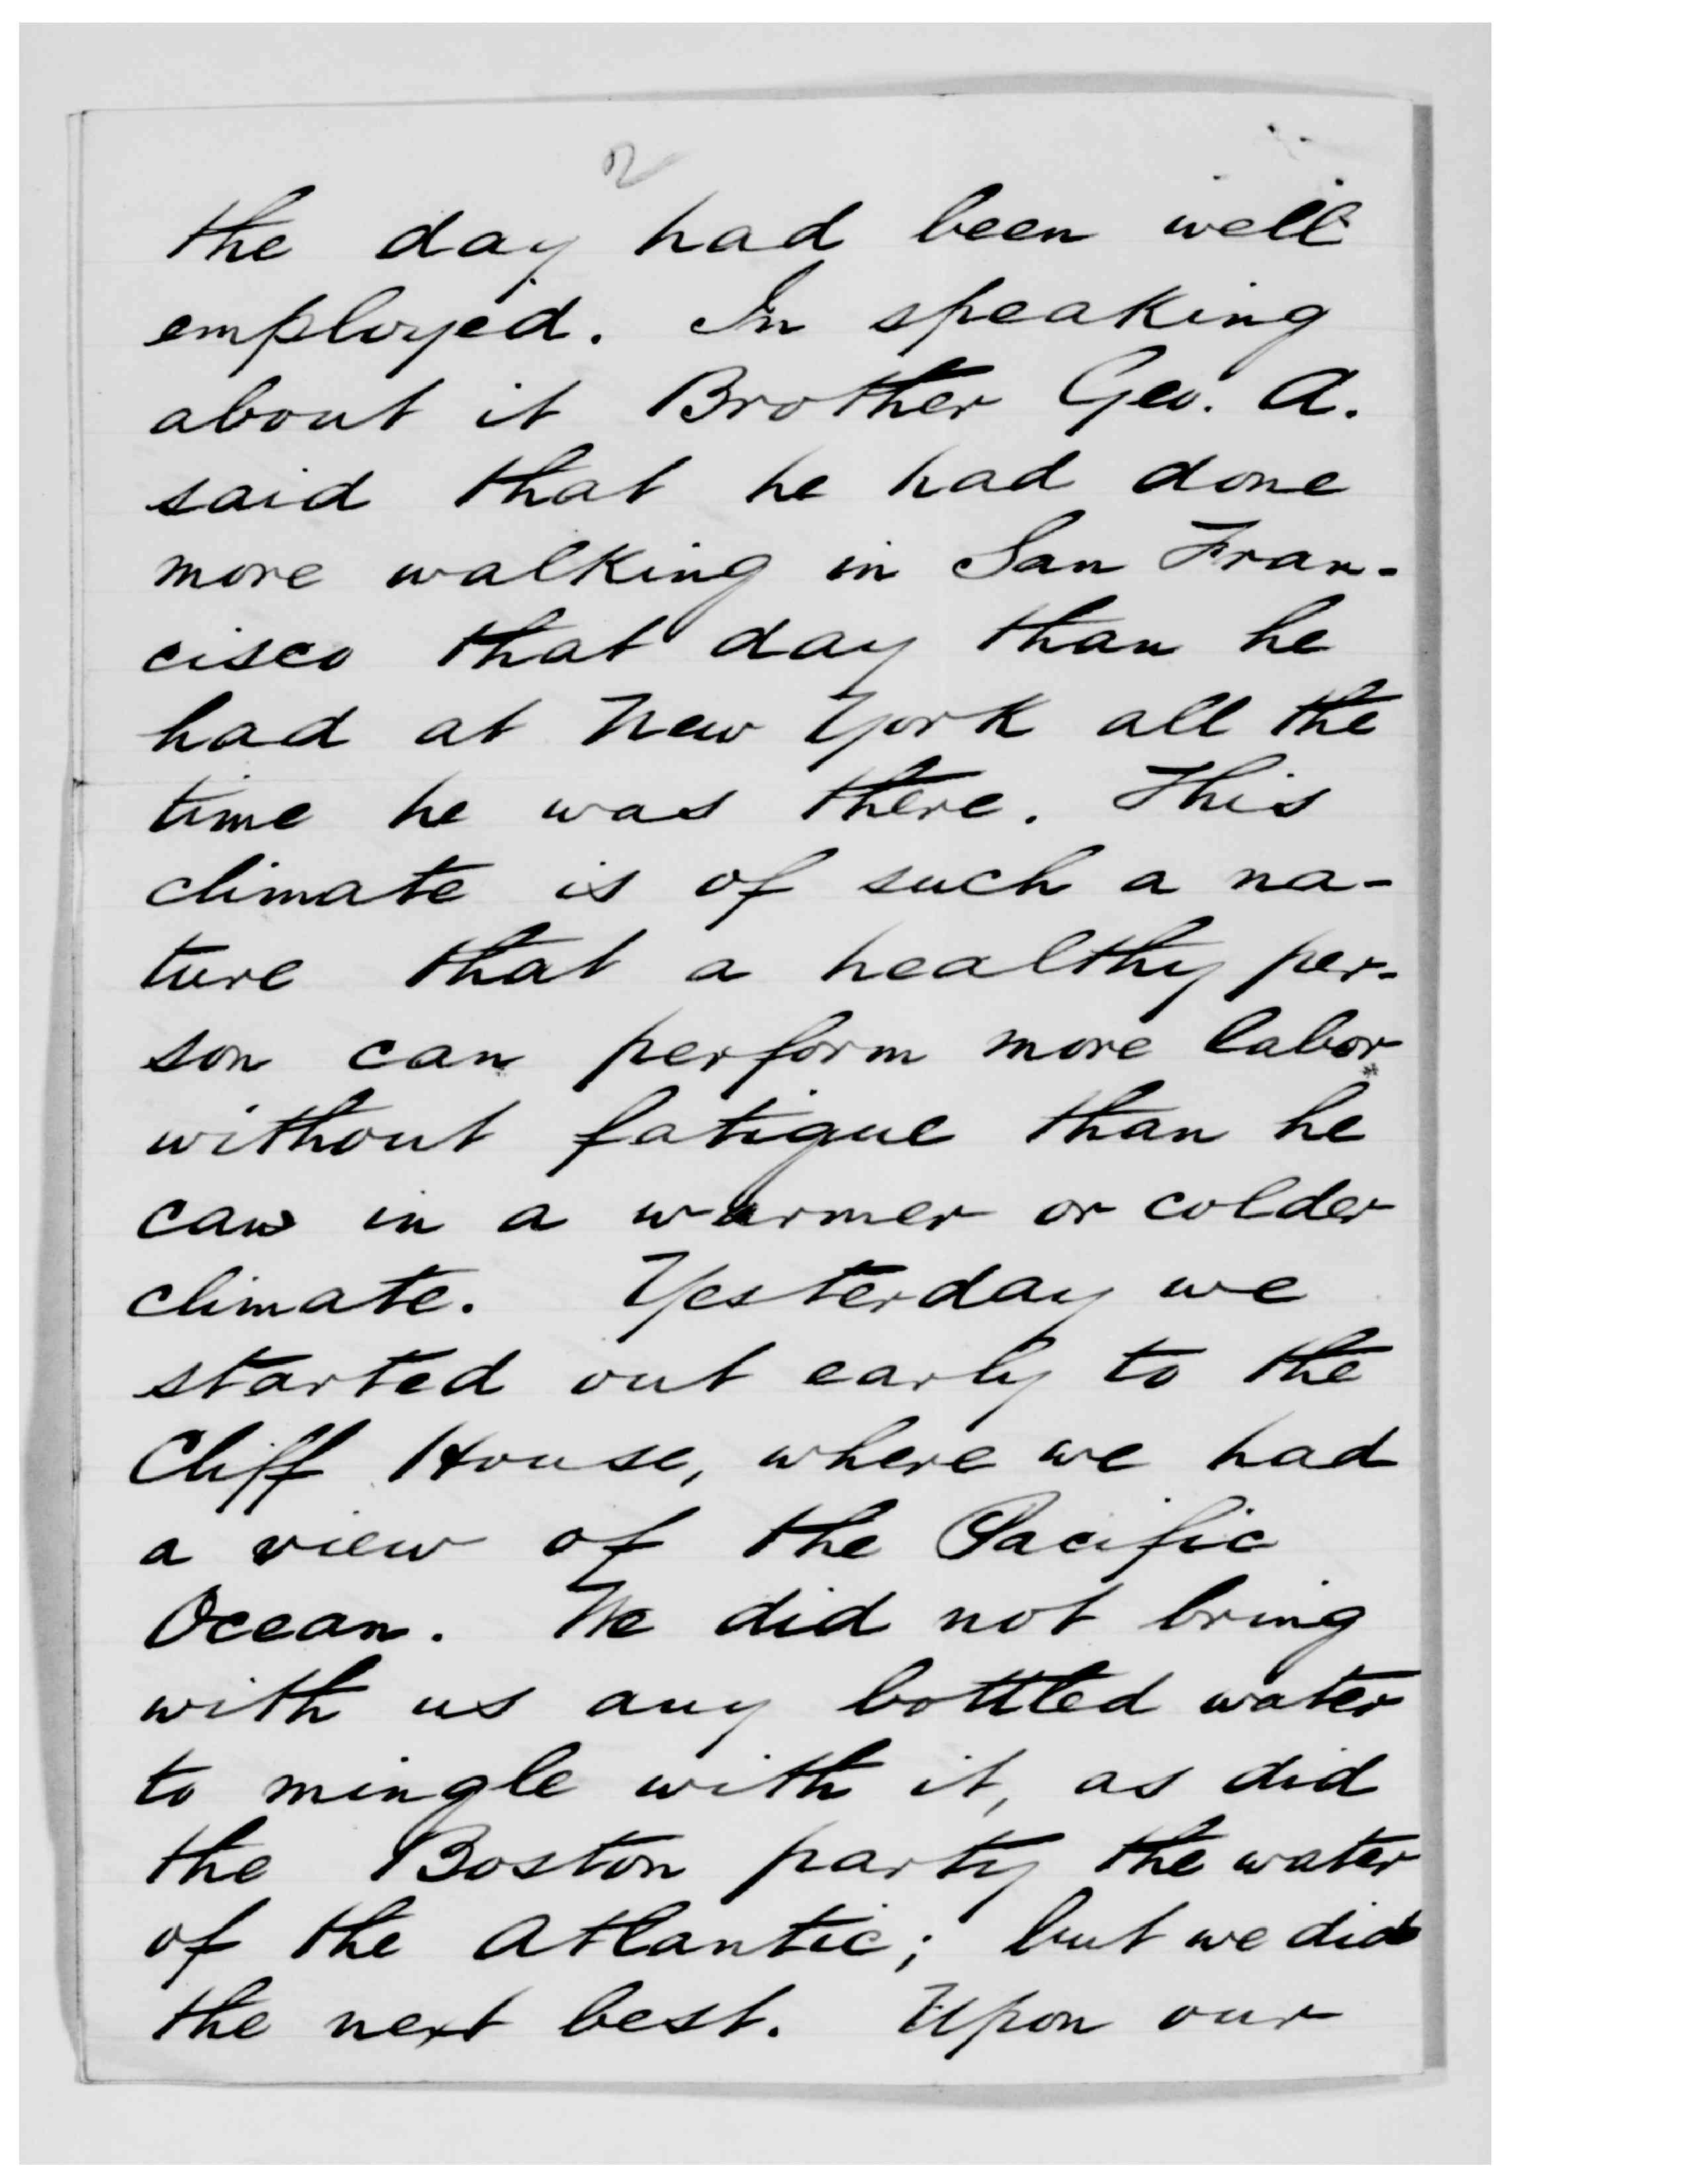 2
the day had been well
employed. In speaking
about it Brother Geo. A.
said that he had done
more walking in San Fran-
cisco that day than he
had at New York all the
time he was there. This
climate is of such a na-
ture that a healthy per-
son can perform more labor
without fatigue than he
can in a warmer or colder
climate. Yesterday we
started out early to the
Cliff House, where we had
a view of the Pacific
Ocean. We did not bring
with us any bottled water
to mingle with it, as did
the Boston party the water
of the Atlantic; but we did
the next best. Upon our